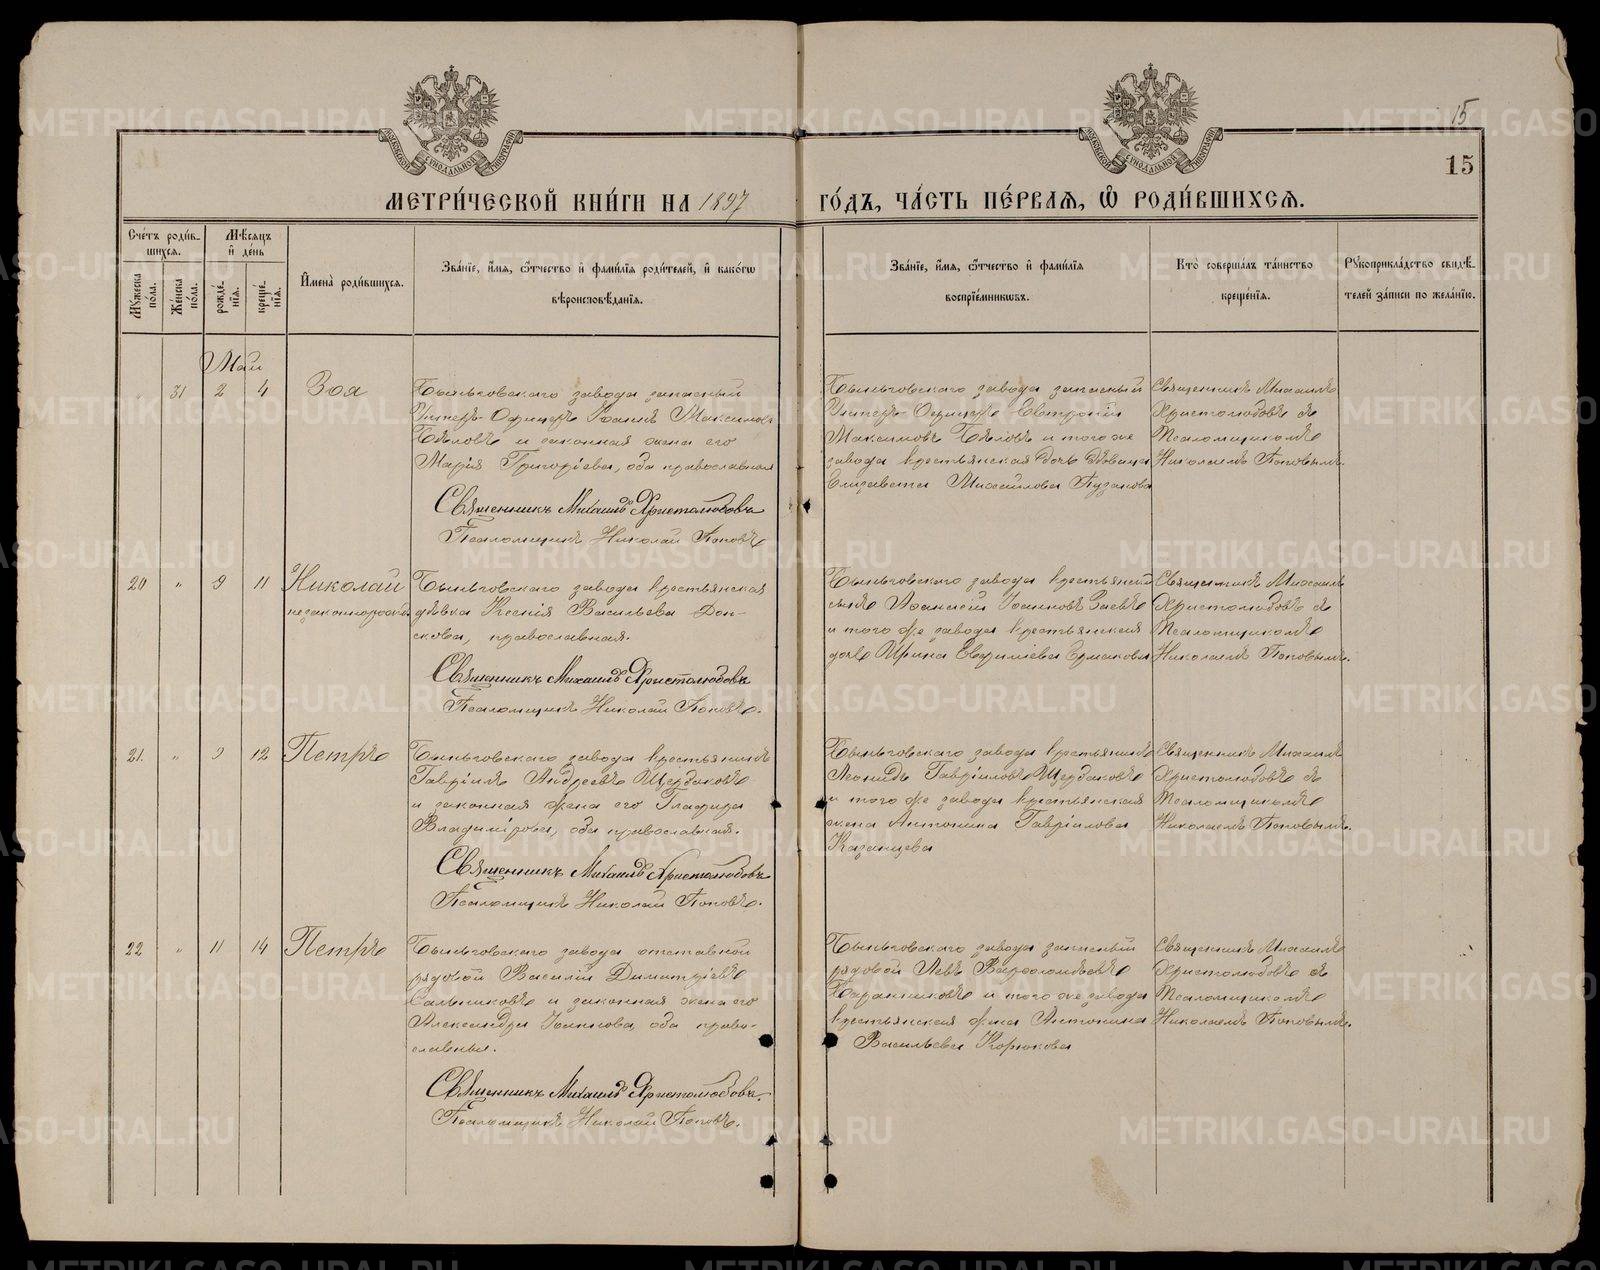 15
15
МЕТРИ́ЧЕСКОЙ КНИ́ГИ НА 1897 ГО́ДЪ, ЧА́СТЬ ПЕ́РВАЯ, Ѽ РОДИ́ВШИХСЯ.
Сче́тъ роди́в-
шихся.
Мꙋжеска по́ла.
Же́нска по́ла.
Мѣ́сяцъ
и҆ де́нь
рожде́-
нїя.
креще́-
нїя.
И҆мена̀ роди́вшихся.
Зва́нїе, и҆́мя, ѻ҆́тчество и҆ фами́лїя роди́телей, и҆ како́гѡ
вѣроисповѣ́данїя.
Зва́нїе, и҆́мя, ѻ҆́тчество и҆ фами́лїя
воспрїе́мниковъ.
Кто̀ соверша́лъ та́инство
креще́нїя.
Рꙋкоприкла́дство свидѣ́-
телей за́писи по жела́нїю.
Май
" 31 2 4 Зоя
Быньговскаго завода запасный
Унтеръ-Офицеръ Іоаннъ Максимовъ
Бѣловъ и законная жена его
Марія Григоріева, оба православная
Священникъ Михаилъ Христолюбовъ
Псаломщикъ Николай Поповъ
Быньговскаго завода запасный
Унтеръ-Офицеръ
Максимовъ Бѣловъ и того же
завода крестьянская дочь дѣвица
Елизавета Михайлова Пузанова
Священникъ Михаилъ
Христолюбовъ съ
Псаломщикомъ
Николаемъ Поповымъ.
20 " 9 11 Николай
незаконнорожден
Быньговскаго завода крестьянская
дѣвка Ксенія Васильева Дон-
скова, православная.
Священникъ Михаилъ Христолюбовъ
Псаломщикъ Николай Поповъ.
Быньговскаго завода крестьянскій
сынъ Іоанновъ
и того же завода крестьянская
дочь Ирина Ермакова
Священникъ Михаилъ
Христолюбовъ съ
Псаломщикомъ
Николаемъ Поповымъ.
21. " 9 12 Петръ
Быньговскаго завода крестьянинъ
Гавріилъ Андреевъ Щербаковъ
и законная жена его Глафира
Владимірова, оба православная.
Священникъ Михаилъ Христолюбовъ
Псаломщикъ Николай Поповъ.
Быньговскаго завода крестьянинъ
Леонидъ Гавріиловъ Щербаковъ
и того же завода крестьянская
жена Антонина Гавріилова
Казанцева
Священникъ Михаилъ
Христолюбовъ съ
Псаломщикомъ
Николаемъ Поповымъ.
22 " 11 14 Петръ
Быньговскаго завода отставной
рядовой Василій Димитріевъ
Сальниковъ и законная жена его
Александра Іоаннова, оба право-
славные.
Священникъ Михаилъ Христолюбовъ.
Псаломщикъ Николай Поповъ.
Быньговскаго завода запасный
рядовой Левъ Варѳоломѣевъ
Баранниковъ и того же завода
крестьянская жена Антонина
Васильева Корюкова
Священникъ Михаилъ
Христолюбовъ съ
Псаломщикомъ
Николаемъ Поповымъ.
METRIKI.GASO-URAL.RU